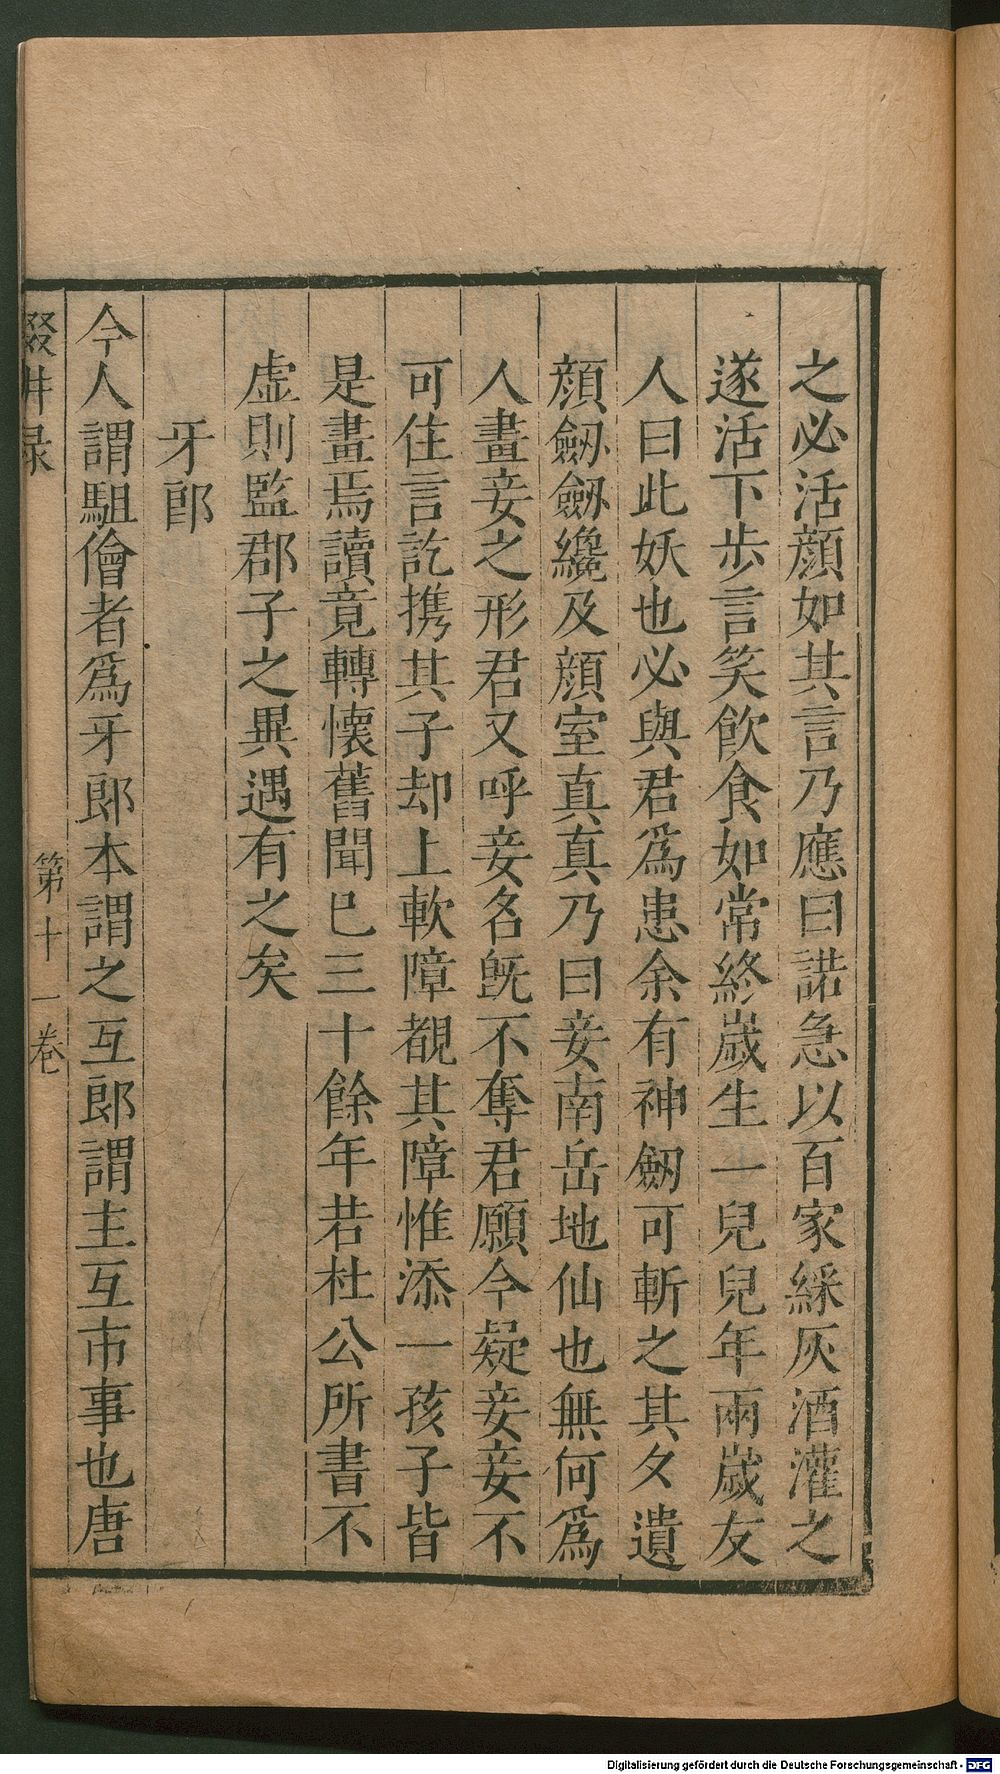 之必活顔如其言乃應曰諾急以百家綵灰酒灌之
遂活下步言笑飲食如常終歲生一兒兒年兩歲友
人曰此妖也必與君爲患余有神劒可斬之其夕遺
顔劒劒纔及顔室真真乃曰妾南岳地仙也無何爲
人畫妾之形君又呼妾名旣不奪君願今疑妾妾不
可住言訖携其子却上軟障覩其障惟添一孩子皆
是畫焉讀竟轉懷舊聞巳三十餘年若杜公所書不
虛則監郡子之異遇有之矣
牙郎
今人謂駔儈者爲牙郎本謂之互郎謂主互市事也唐
輟畊录 第十一卷
Digitalisierung gefördert durch die Deutsche Forschungsgemeinschaft - DFG